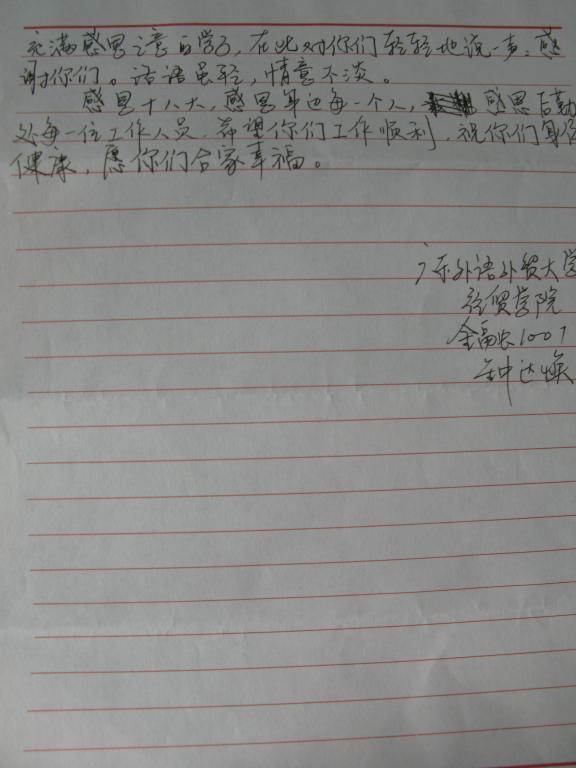 充满感恩之意的学子，在此对你们轻轻地说一声：感
谢你们。话语虽轻，情意不淡。
感恩十八大，感恩身边每一个人，感恩后勤
处每一位工作人员，希望你们工作顺利，祝你们身体
健康，愿你们合家幸福。
广东外语外贸大学
经贸学院
金融1001
钟达焕